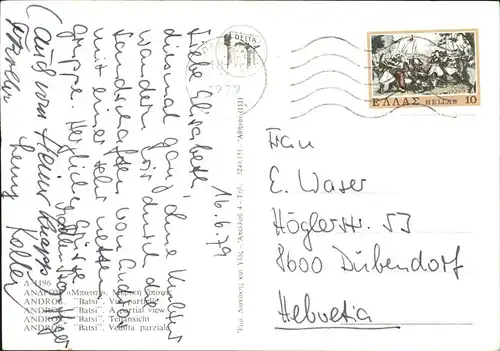 16.6.79
Liebe Elisabeth,
diesmal ganz ohne Kultur
wandern wir durch die
Landschaften von Andros
mit einer sehr netten
Gruppe. Herzliche Grüsse
(auch von Heiner Knapp
Jenny Koller
DELTA
1979
ΕΛΛΑΣ HELLAS 10
Frau
E. Waser
Höglerstr. 53
8600 Dübendorf
Helvetia
Δ 1196
ΑΝΔΡΟΣ «Μπατσί». Μερική άποψη
ANDROS "Batsi". Vue partielle
ANDROS "Batsi". A partial view
ANDROS "Batsi". Teilansicht
ANDROS "Batsi". Veduta parziale